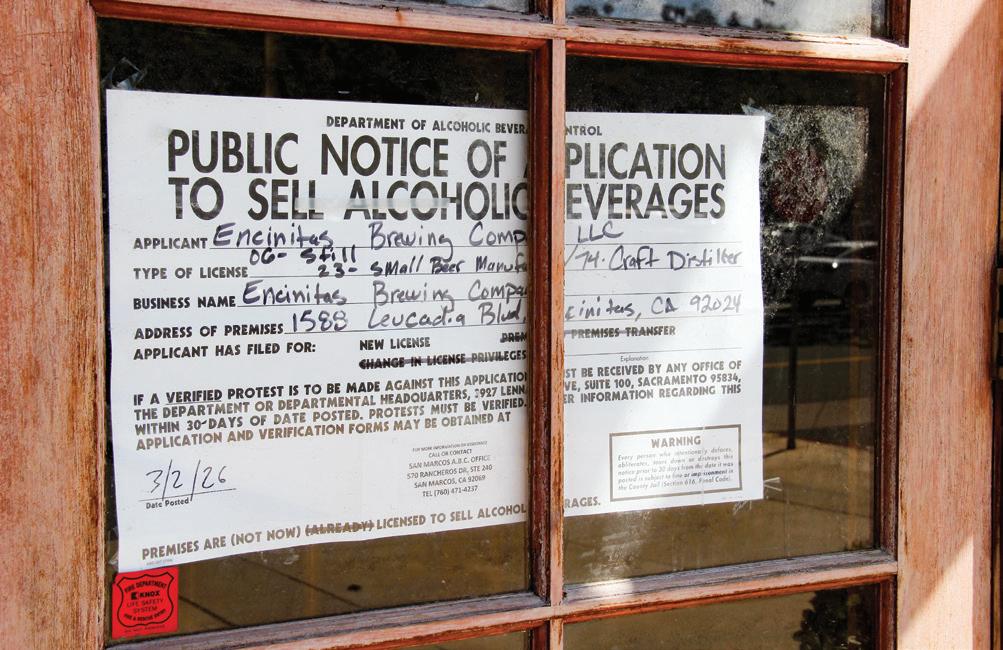 DEPARTMENT OF ALCOHOLIC BEVERA NTROL
PUBLIC NOTICE OF PLICATION
TO SELL ALCOHOLIC EVERAGES
APPLICANT Encinitas Brewing Comp LLC
06- Still
TYPE OF LICENSE 23- Small Beer Manufa /74-Craft Distiller
BUSINESS NAME Encinitas Brewing Compa
ADDRESS OF PREMISES 1588 Leucadia Blvd, cinitas, CA 92024
APPLICANT HAS FILED FOR: NEW LICENSE PREM PREMISES TRANSFER
CHANGE IN LICENSE PRIVILEGES
Explanation
IF A VERIFIED PROTEST IS TO BE MADE AGAINST THIS APPLICATION ST BE RECEIVED BY ANY OFFICE OF
THE DEPARTMENT OR DEPARTMENTAL HEADQUARTERS, 3927 LENN VE, SUITE 100, SACRAMENTO 95834,
WITHIN 30-DAYS OF DATE POSTED. PROTESTS MUST BE VERIFIED. ER INFORMATION REGARDING THIS
APPLICATION AND VERIFICATION FORMS MAY BE OBTAINED AT
FOR MORE INFORMATION OR ASSISTANCE
CALL OR CONTACT
SAN MARCOS A.B.C. OFFICE
570 RANCHEROS DR, STE 240
SAN MARCOS, CA 92069
TEL (760) 471-4237
3/2/26
Date Posted
WARNING
Every person who intentionally defaces,
obliterates, tears down or destroys this
notice prior to 30 days from the date it was
posted is subject to fine or imprisonment in
the County Jail (Section 616, Penal Code).
PREMISES ARE (NOT NOW) (ALREADY) LICENSED TO SELL ALCOHOL RAGES.
FIRE DEPARTMENT
KNOX
LIFE SAFETY
SYSTEM